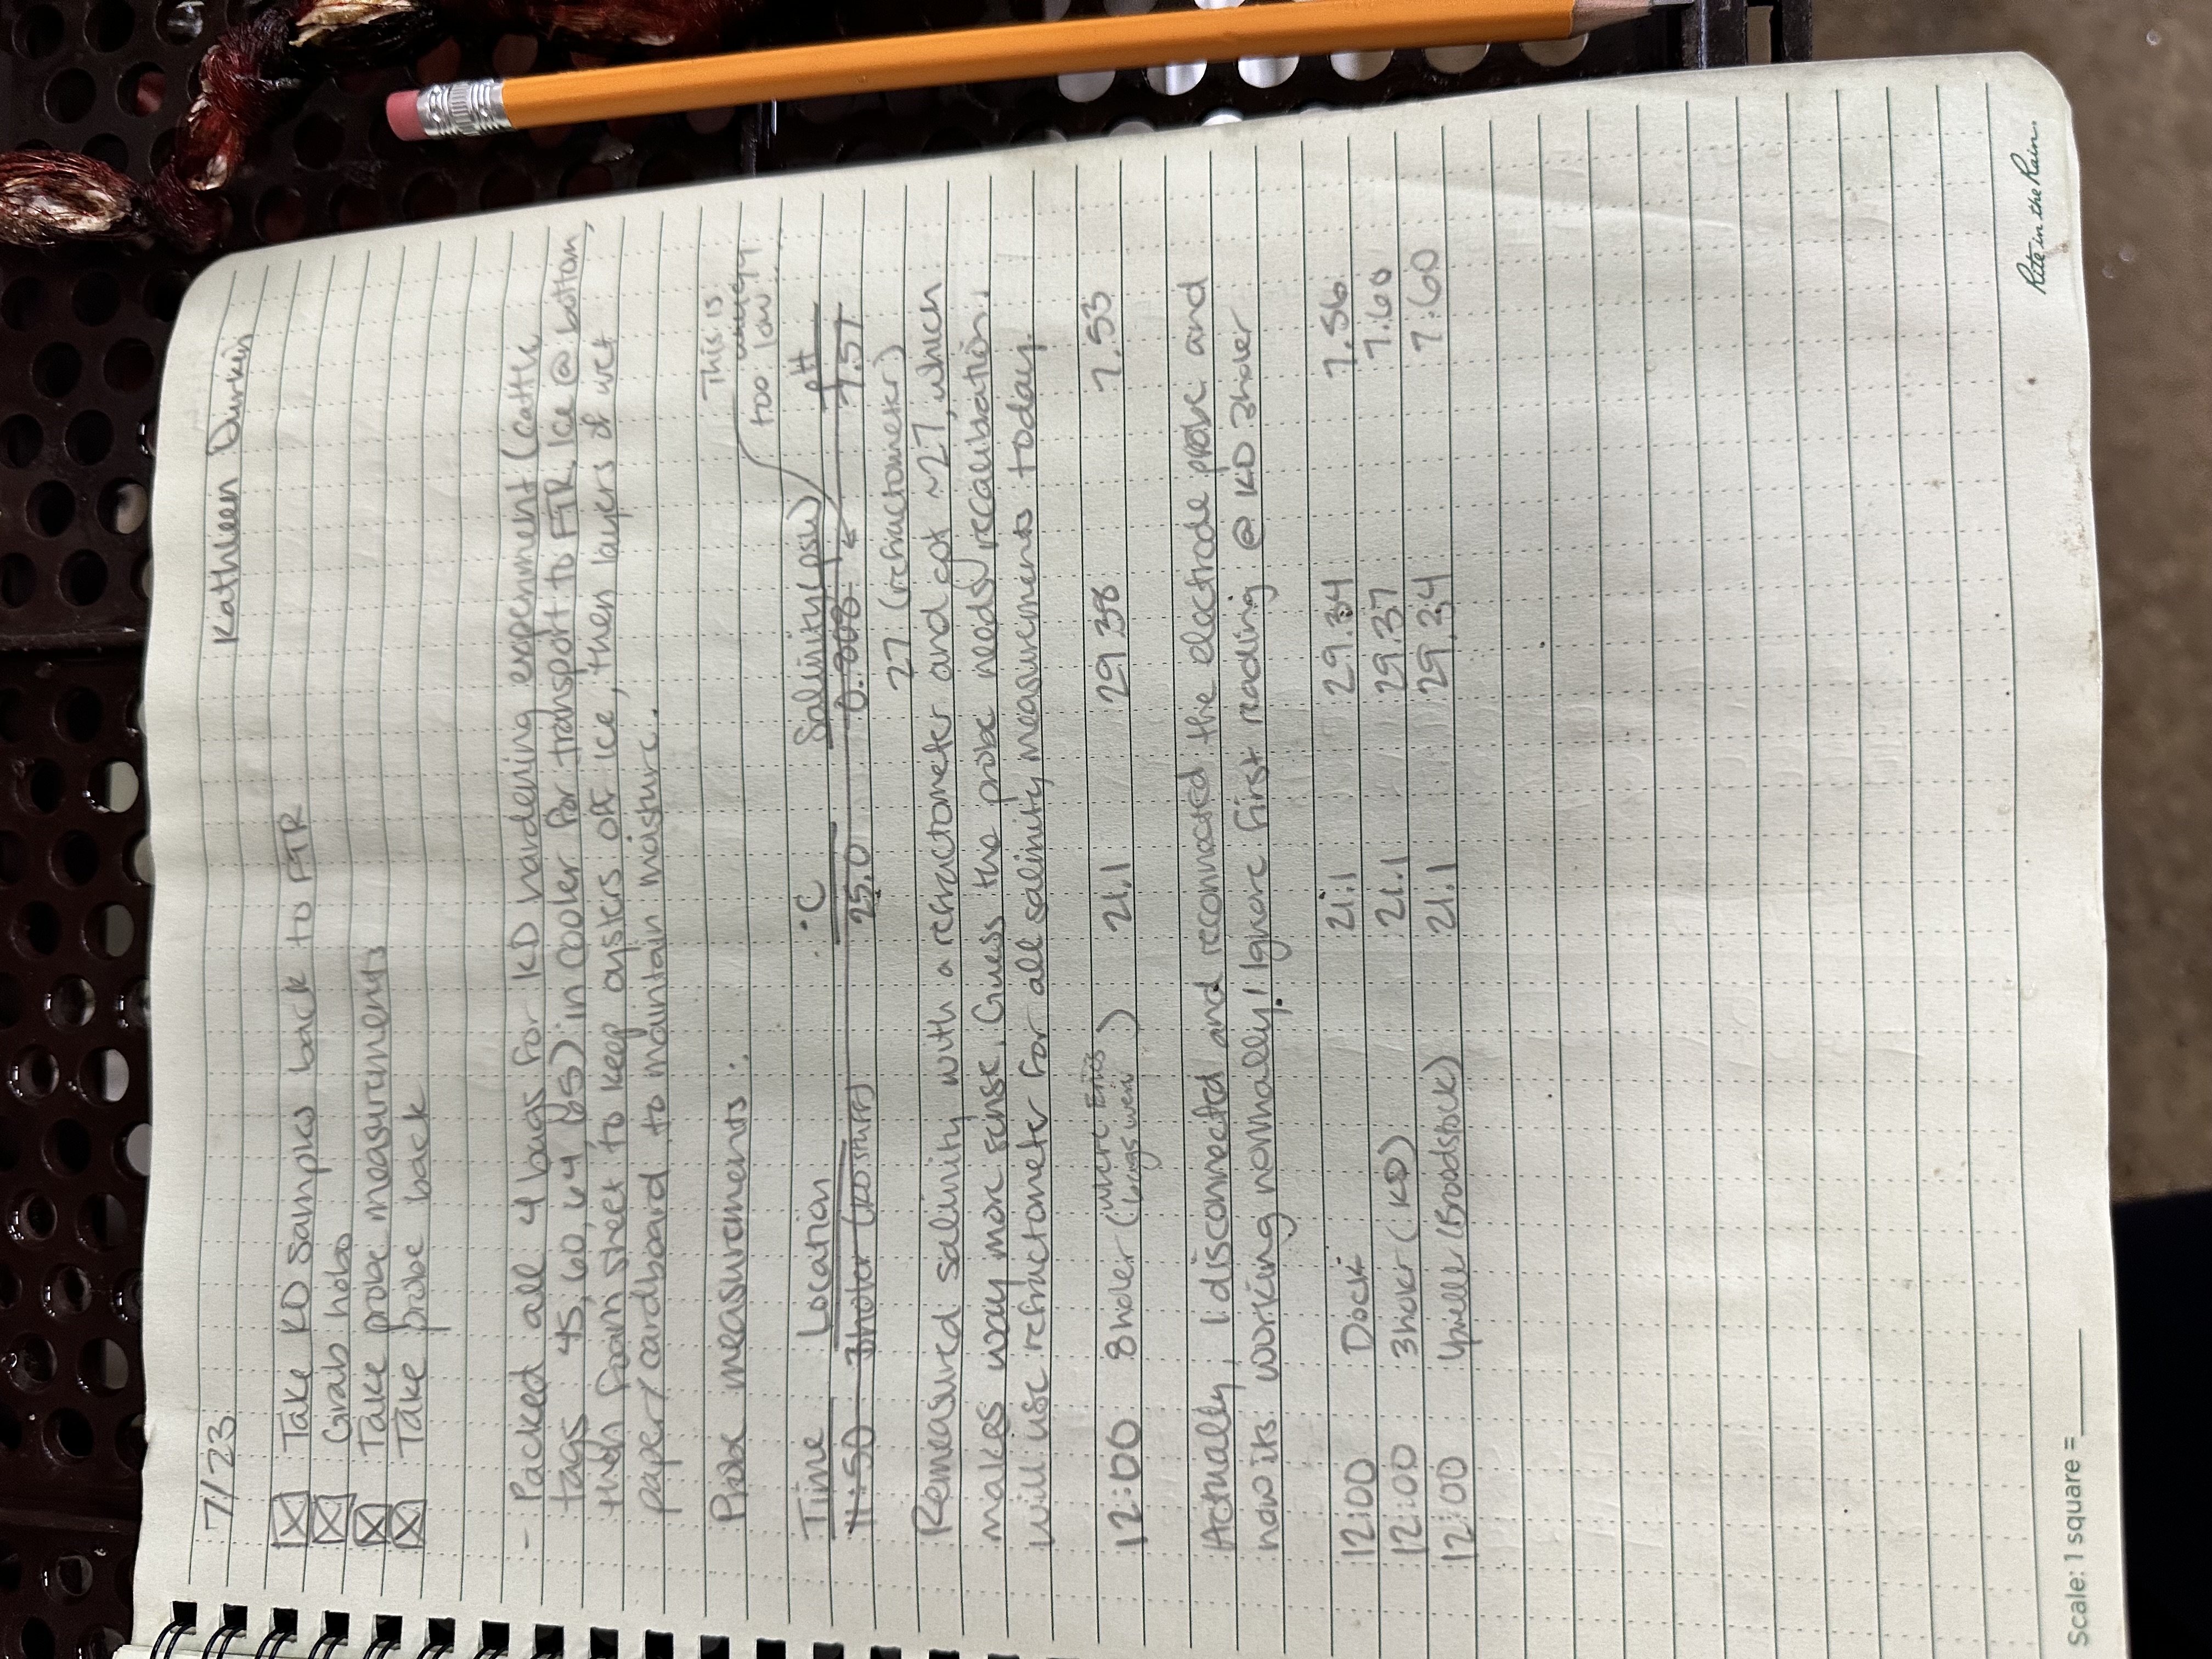 7/23 Kathleen Durkin
Take KD samples back to FTR
Grab hobo
Take probe measurements
Take probe back
- Packed all 4 bags for KD hardening experiment (cattle
tags 45, 60, 64, 65) in cooler for transport to FTR. Ice @ bottom,
then foam sheet to keep oysters off ice, then layers of wet
paper/cardboard to maintain moisture.
This is
too low
Probe measurements:
Time Location °C Salinity (psu) pH
11:50 3holer (KD stuff) 25.0 0.808 7.57
27 (refractometer)
Remeasured salinity with a refractometer and got ~27, which
makes way more sense. Guess the probe needs recalibration.
will use refractometer for all salinity measurements today.
12:00 8holer (were Erics bags were) 21.1 29.38 7.53
Actually, I disconnected and reconnected the electrode probe and
now its working normally! Ignore first reading @ KD 3holer
12:00 Dock 21.1 29.34 7.56
12:00 3holer (KD) 21.1 29.37 7.60
12:00 (Broodstock) 21.1 29.34 7.60
Rite in the Rain.
Scale: 1 square =